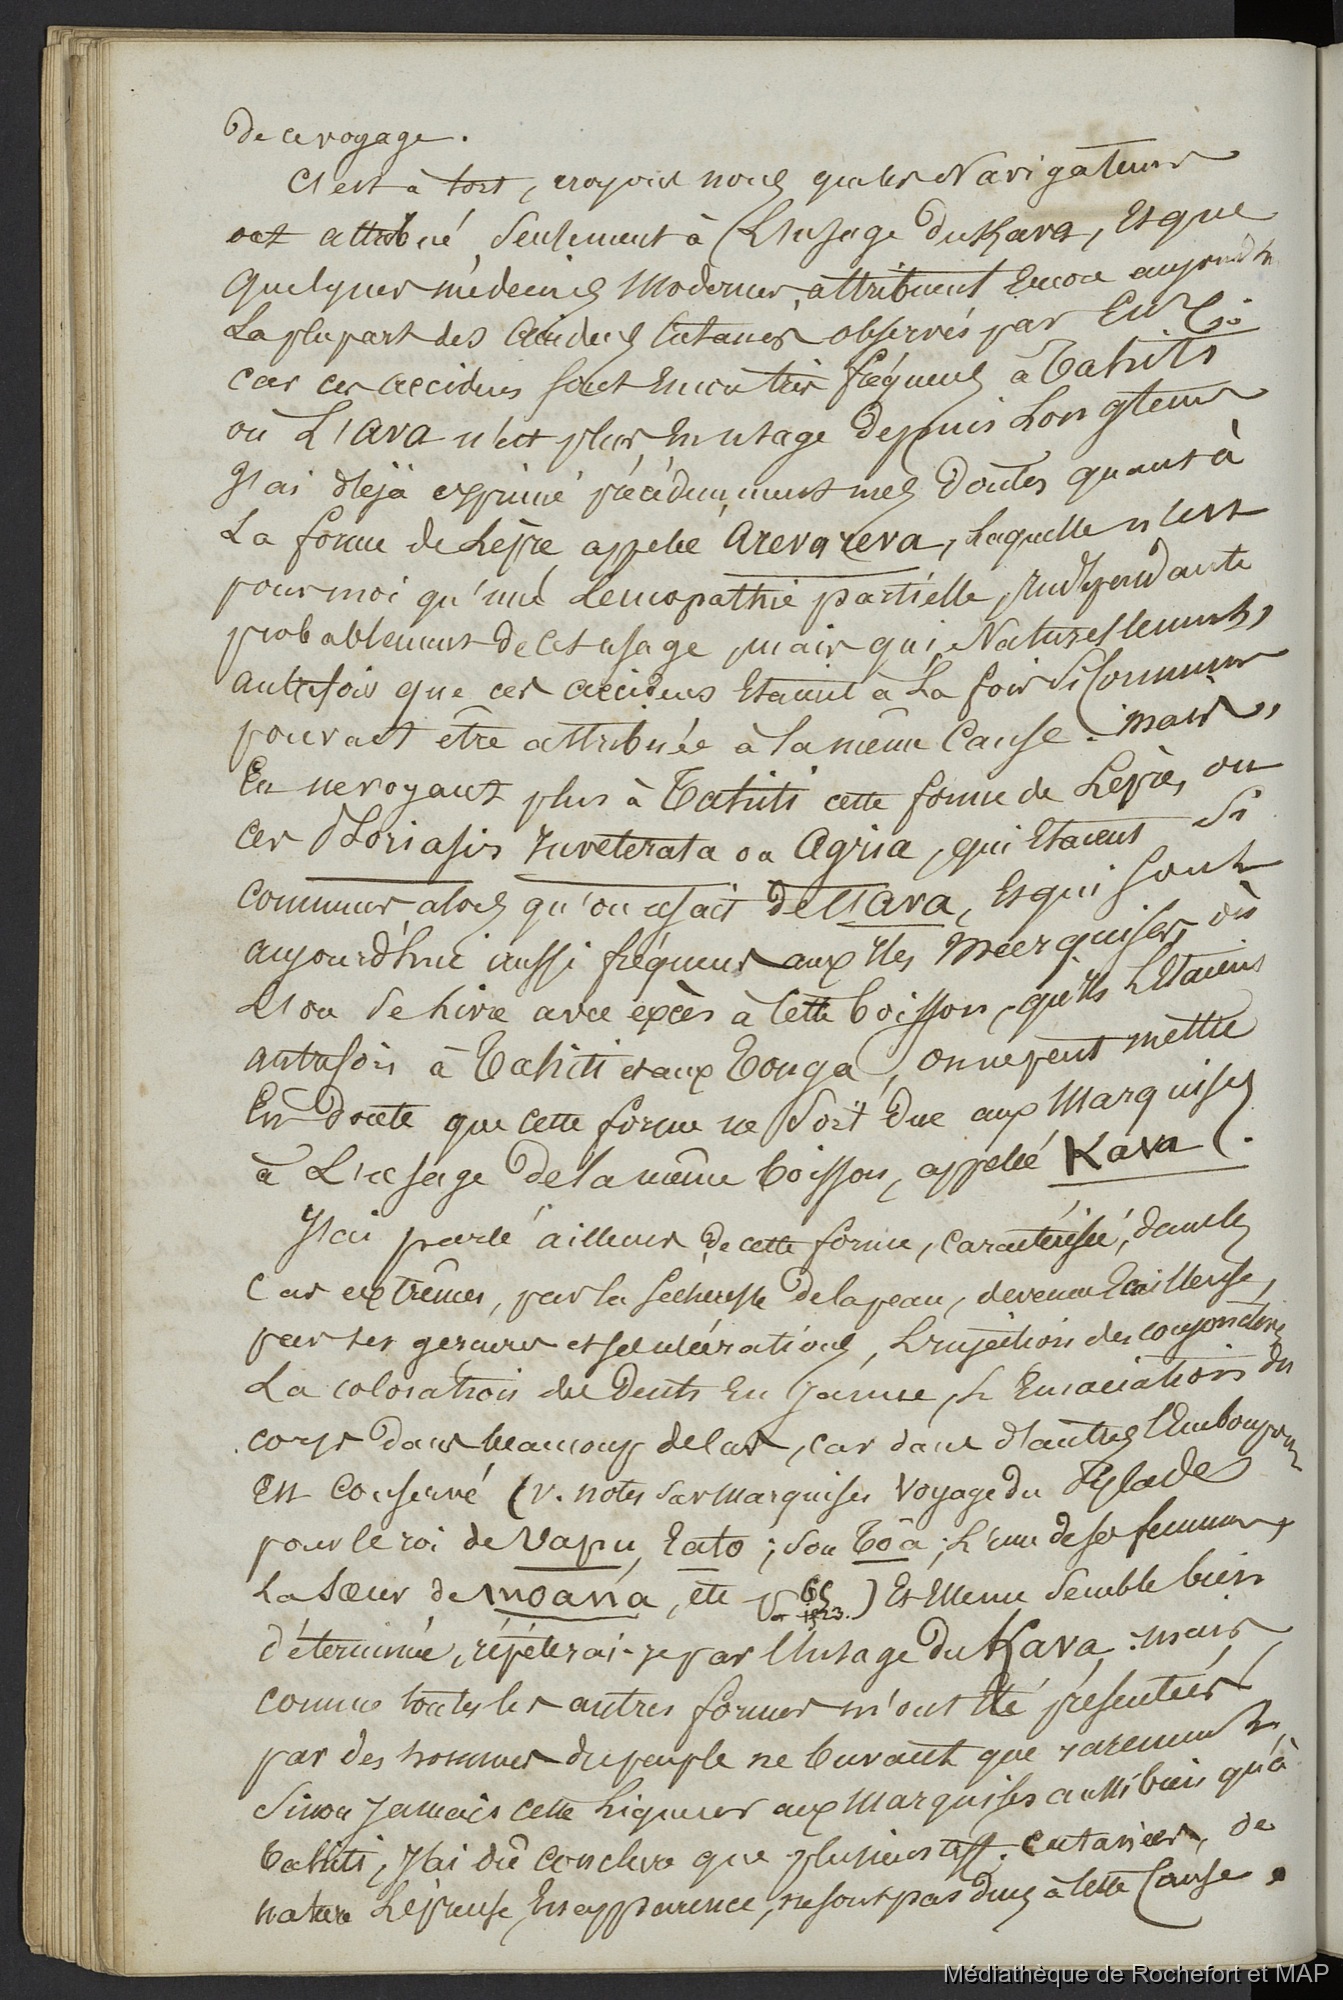 De ce voyage.
C'est à tort, croyons nous, que les Navigateurs
ont attribué, seulement à L'usage du Kava, Et que
quelques médecins modernes, attribuent Encore aujourd'h
La plupart des accidens Cutanés observés par Eux :
car ces accidens sont Encore très fréquens à Tahiti
où L'ava n'est plus En usage Depuis Longtems
J'ai déjà exprimé précédemment mes Doutes quant à
La forme de Lèpre appelée Arevareva, Laquelle n'est
pour moi qu'une Leucopathie partielle, Indépendante
probablement de Cet usage, mais qui, Naturellement,
autrefois que ces accidens Etaient à La fois si Communs
pouvait être attribuée à la même Cause. mais,
En ne voyant plus à Tahiti cette forme de Lèpre, ou
ces Psoriasis Inveterata ou Agria, qui Etaient si
communs alors qu'on usait de L'ava, Et qui sont
aujourd'hui aussi fréquens aux Iles Marquises, où
L'on se livre avec excès à Cette boisson, qu'ils L'Etaient
autrefois à Tahiti et aux Tonga, on ne peut mettre
En Doute que cette forme ne soit Due aux Marquises
à L'usage De la même boisson, appelée Kava.
J'ai parlé ailleurs de cette forme, caractérisée, dans les
Cas extrêmes, par la sécheresse de la peau, devenue Ecailleuse,
par ses gerçures et ses ulcérations, L'injection des conjonctives
La coloration des Dents En Jaune, L'Emaciation du
corps Dans beaucoup de Cas, car dans d'autres l'Embonpoint
Est Conservé (v. notes sur Marquises Voyage du Pylade
pour le roi de Vapu, Eato ; son Toa ; L'une de ses femmes,
La Sœur de Moana, etc ) Et Elle me semble bien
déterminée, répèterai-je par L'usage Du Kava : mais
comme toutes les autres formes m'ont été présentées
par des hommes du peuple ne buvant que rarement,
sinon Jamais cette Liqueur aux Marquises aussi bien qu'à
Tahiti, J'ai dû conclure que plusieurs aff. cutanées, de
nature Lépreuse En apparence, ne sont pas dues à Cette Cause.
Médiathèque de Rochefort et MAP